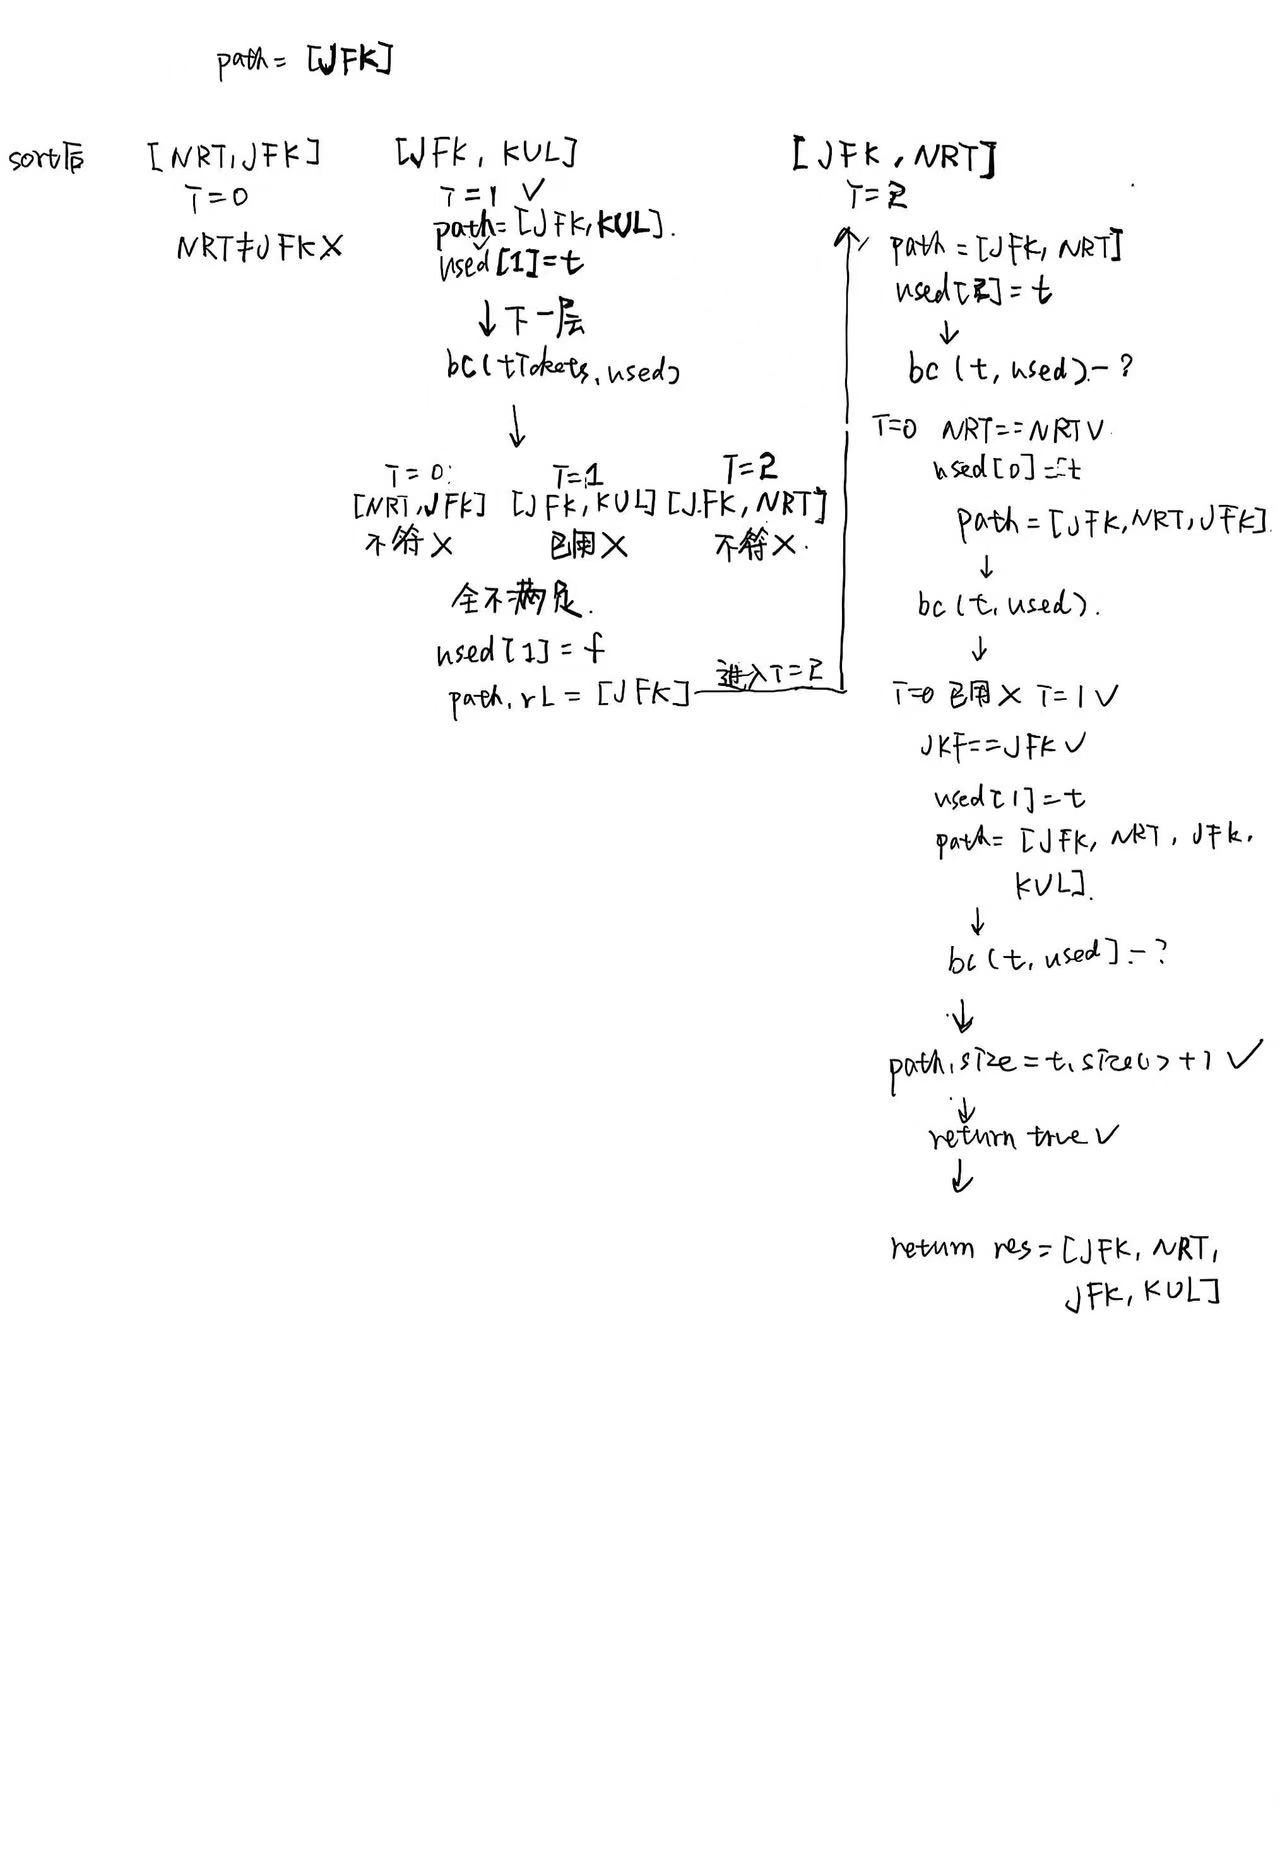 path = [JFK]
sort后 [NRT,JFK] [JFK, KUL] [JFK, NRT]
i=0
NRT≠JFK×
i=1 ✓
path=[JFK,KUL].
used[1]=t
↓下一层
bc(tickets,used)
↓
i=0: i=1 i=2
[NRT,JFK] [JFK,KUL] [JFK,NRT]
不符× 已用× 不符×.
全不满足.
used[1]=f
path.rL=[JFK] 进入i=2
i=2
path=[JFK,NRT]
used[2]=t
↓
bc(t,used).-?
i=0 NRT==NRT✓
used[0]=t
path=[JFK,NRT,JFK].
↓
bc(t,used).
↓
i=0 已用× i=1✓
JKF==JFK✓
used[1]=t
path=[JFK,NRT,JFK,
KUL].
↓
bc(t,used]-?
↓
path.size=t.size()+1✓
↓
return true✓
↓
return res=[JFK,NRT,
JFK,KUL]